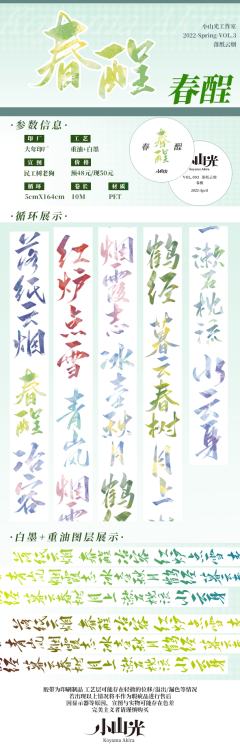 小山光工作室
2022·Spring·VOL.3
落纸云烟
春酲
春酲
·参数信息·
印厂
工艺
大年印厂
重油+白墨
宣图
价格
民工树老狗
预48元/现50元
循环
卷长
材质
5cmX164cm
10M
PET
春
酲
小山光
Koyama Akira
VOL.003 落纸云烟
春酲
2022 April
·循环展示·
落纸云烟
春酲
冶容
红炉点雪
青岚
烟霞
烟霞志
冰壶秋月
鹤径
鹤径
暮云春树
月上
漱石枕流
山云身
·白墨+重油图层展示·
胶带为印刷制品 工艺层可能存在轻微的位移/溢出/漏色等情况
若出现以上情况将不作为瑕疵品进行售后
因显示器等原因，宣图与实物可能存在色差
完美主义者请谨慎购买
小山光
Koyama Akira